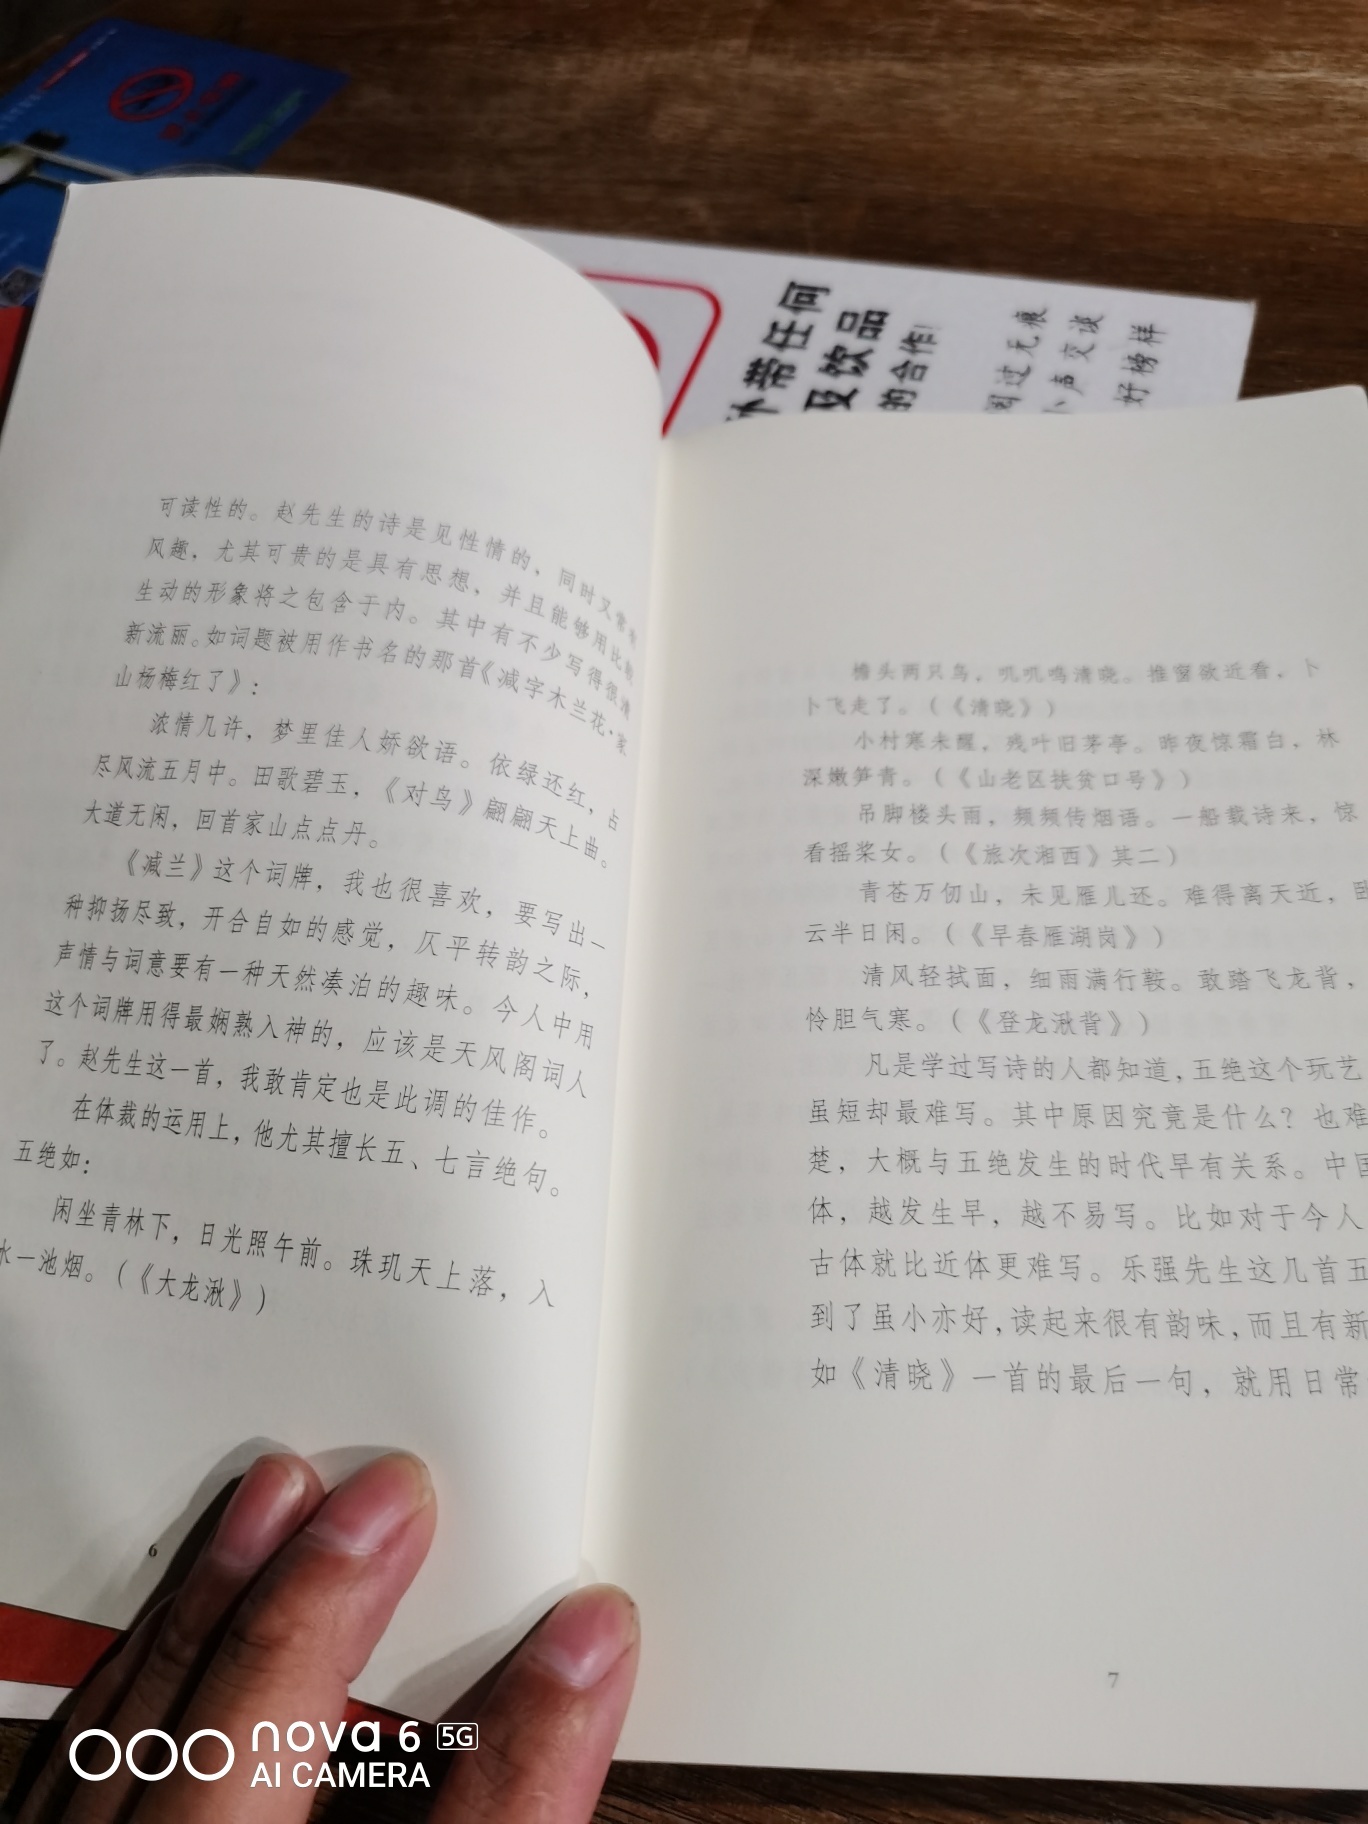 外带任何
及饮品
的合作!
阅过无痕
小声交谈
好榜样
可读性的。赵先生的诗是见性情的，同时又常有
风趣，尤其可贵的是具有思想，并且能够用比较
生动的形象将之包含于内。其中有不少写得很清
新流丽。如词题被用作书名的那首《减字木兰花·家
山杨梅红了》：
浓情几许，梦里佳人娇欲语。依绿还红，占
尽风流五月中。田歌碧玉，《对鸟》翩翩天上曲。
大道无闲，回首家山点点丹。
《减兰》这个词牌，我也很喜欢，要写出一
种抑扬尽致，开合自如的感觉，仄平转韵之际，
声情与词意要有一种天然凑泊的趣味。今人中用
这个词牌用得最娴熟入神的，应该是天风阁词人
了。赵先生这一首，我敢肯定也是此调的佳作。
在体裁的运用上，他尤其擅长五、七言绝句。
五绝如：
闲坐青林下，日光照午前。珠玑天上落，入
水一池烟。（《大龙湫》）
6
檐头两只鸟，叽叽鸣清晓。推窗欲近看，卜
卜飞走了。（《清晓》）
小村寒未醒，残叶旧茅亭。昨夜惊霜白，林
深嫩笋青。（《山老区扶贫口号》）
吊脚楼头雨，频频传烟语。一船载诗来，惊
看摇桨女。（《旅次湘西》其二）
青苍万仞山，未见雁儿还。难得离天近，卧
云半日闲。（《早春雁湖岗》）
清风轻拭面，细雨满行鞍。敢踏飞龙背，
怜胆气寒。（《登龙湫背》）
凡是学过写诗的人都知道，五绝这个玩艺
虽短却最难写。其中原因究竟是什么？也难
楚，大概与五绝发生的时代早有关系。中国
体，越发生早，越不易写。比如对于今人
古体就比近体更难写。乐强先生这几首五
到了虽小亦好，读起来很有韵味，而且有新
如《清晓》一首的最后一句，就用日常
7
nova 6 5G
AI CAMERA